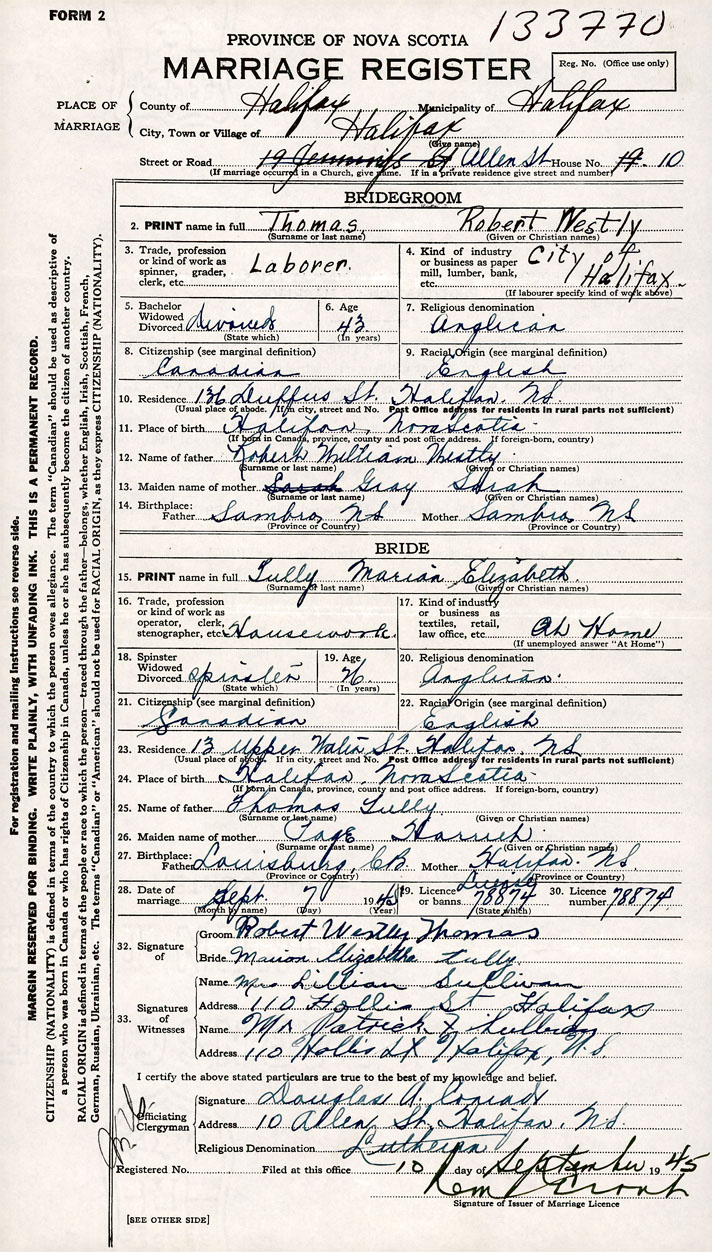 FORM 2
133770
PROVINCE OF NOVA SCOTIA
MARRIAGE REGISTER
Reg. No. (Office use only)
PLACE OF MARRIAGE
County of Halifax Municipality of Halifax
City, Town or Village of Halifax
(Give name)
Street or Road 19 Jennings St Allen St House No. 19. 10
(If marriage occurred in a Church, give name. If in a private residence give street and number)
BRIDEGROOM
2. PRINT name in full Thomas, Robert Westly
(Surname or last name) (Given or Christian names)
3. Trade, profession or kind of work as spinner, grader, clerk, etc. Laborer.
4. Kind of industry or business as paper mill, lumber, bank, etc. City of Halifax
(If labourer specify kind of work above)
5. Bachelor Widowed Divorced divorced
(State which)
6. Age 43
(In years)
7. Religious denomination Anglican
8. Citizenship (see marginal definition) Canadian
9. Racial Origin (see marginal definition) English
10. Residence 136 Duffus St. Halifax. NS.
(Usual place of abode. If in city, street and No. Post Office address for residents in rural parts not sufficient)
11. Place of birth Halifax, Nova Scotia
(If born in Canada, province, county and post office address. If foreign-born, country)
12. Name of father Robert William Westly
(Surname or last name) (Given or Christian names)
13. Maiden name of mother Sarah Gray Sarah
(Surname or last name) (Given or Christian names)
14. Birthplace: Father Sambro, NS Mother Sambro, NS
(Province or Country) (Province or Country)
BRIDE
15. PRINT name in full Tully Marion Elizabeth.
(Surname or last name) (Given or Christian names)
16. Trade, profession or kind of work as operator, clerk, stenographer, etc. Housework.
17. Kind of industry or business as textiles, retail, law office, etc. At Home
(If unemployed answer "At Home")
18. Spinster Widowed Divorced spinster
(State which)
19. Age 26
(In years)
20. Religious denomination Anglican.
21. Citizenship (see marginal definition) Canadian
22. Racial Origin (see marginal definition) English
23. Residence 13 Upper Water St. Halifax, NS
(Usual place of abode. If in city, street and No. Post Office address for residents in rural parts not sufficient)
24. Place of birth Halifax, Nova Scotia
(If born in Canada, province, county and post office address. If foreign-born, country)
25. Name of father Thomas Tully
(Surname or last name) (Given or Christian names)
26. Maiden name of mother Page
(Surname or last name) (Given or Christian names)
27. Birthplace: Father Louisburg, CB Mother Halifax. NS.
(Province or Country) (Province or Country)
28. Date of marriage Sept. 7 1945
(Month by name) (Day) (Year)
29. Licence or banns 78874
(State which)
30. Licence number 78874
32. Signature of
Groom Robert Westley Thomas
Bride Marion Elizabeth Tully.
33. Signatures of Witnesses
Name Mrs Lillian Sullivan
Address 110 Hollis St Halifax
Name Mr Patrick
Address 110 Hollis St Halifax, N.S.
I certify the above stated particulars are true to the best of my knowledge and belief.
Officiating Clergyman
Signature Douglas A. Conrad
Address 10 Allen St. Halifax, N.S.
Religious Denomination Lutheran
Registered No. Filed at this office 10 day of September 1945
Signature of Issuer of Marriage Licence
[SEE OTHER SIDE]
For registration and mailing instructions see reverse side.
MARGIN RESERVED FOR BINDING. WRITE PLAINLY, WITH UNFADING INK. THIS IS A PERMANENT RECORD.
CITIZENSHIP (NATIONALITY) is defined in terms of the country to which the person owes allegiance. The term "Canadian" should be used as descriptive of
a person who was born in Canada or who has rights of Citizenship in Canada, unless he or she has subsequently become the citizen of another country.
RACIAL ORIGIN is defined in terms of the people or race to which the person—traced through the father—belongs, whether English, Irish, Scottish, French,
German, Russian, Ukrainian, etc. The terms "Canadian" or "American" should not be used for RACIAL ORIGIN, as they express CITIZENSHIP (NATIONALITY).